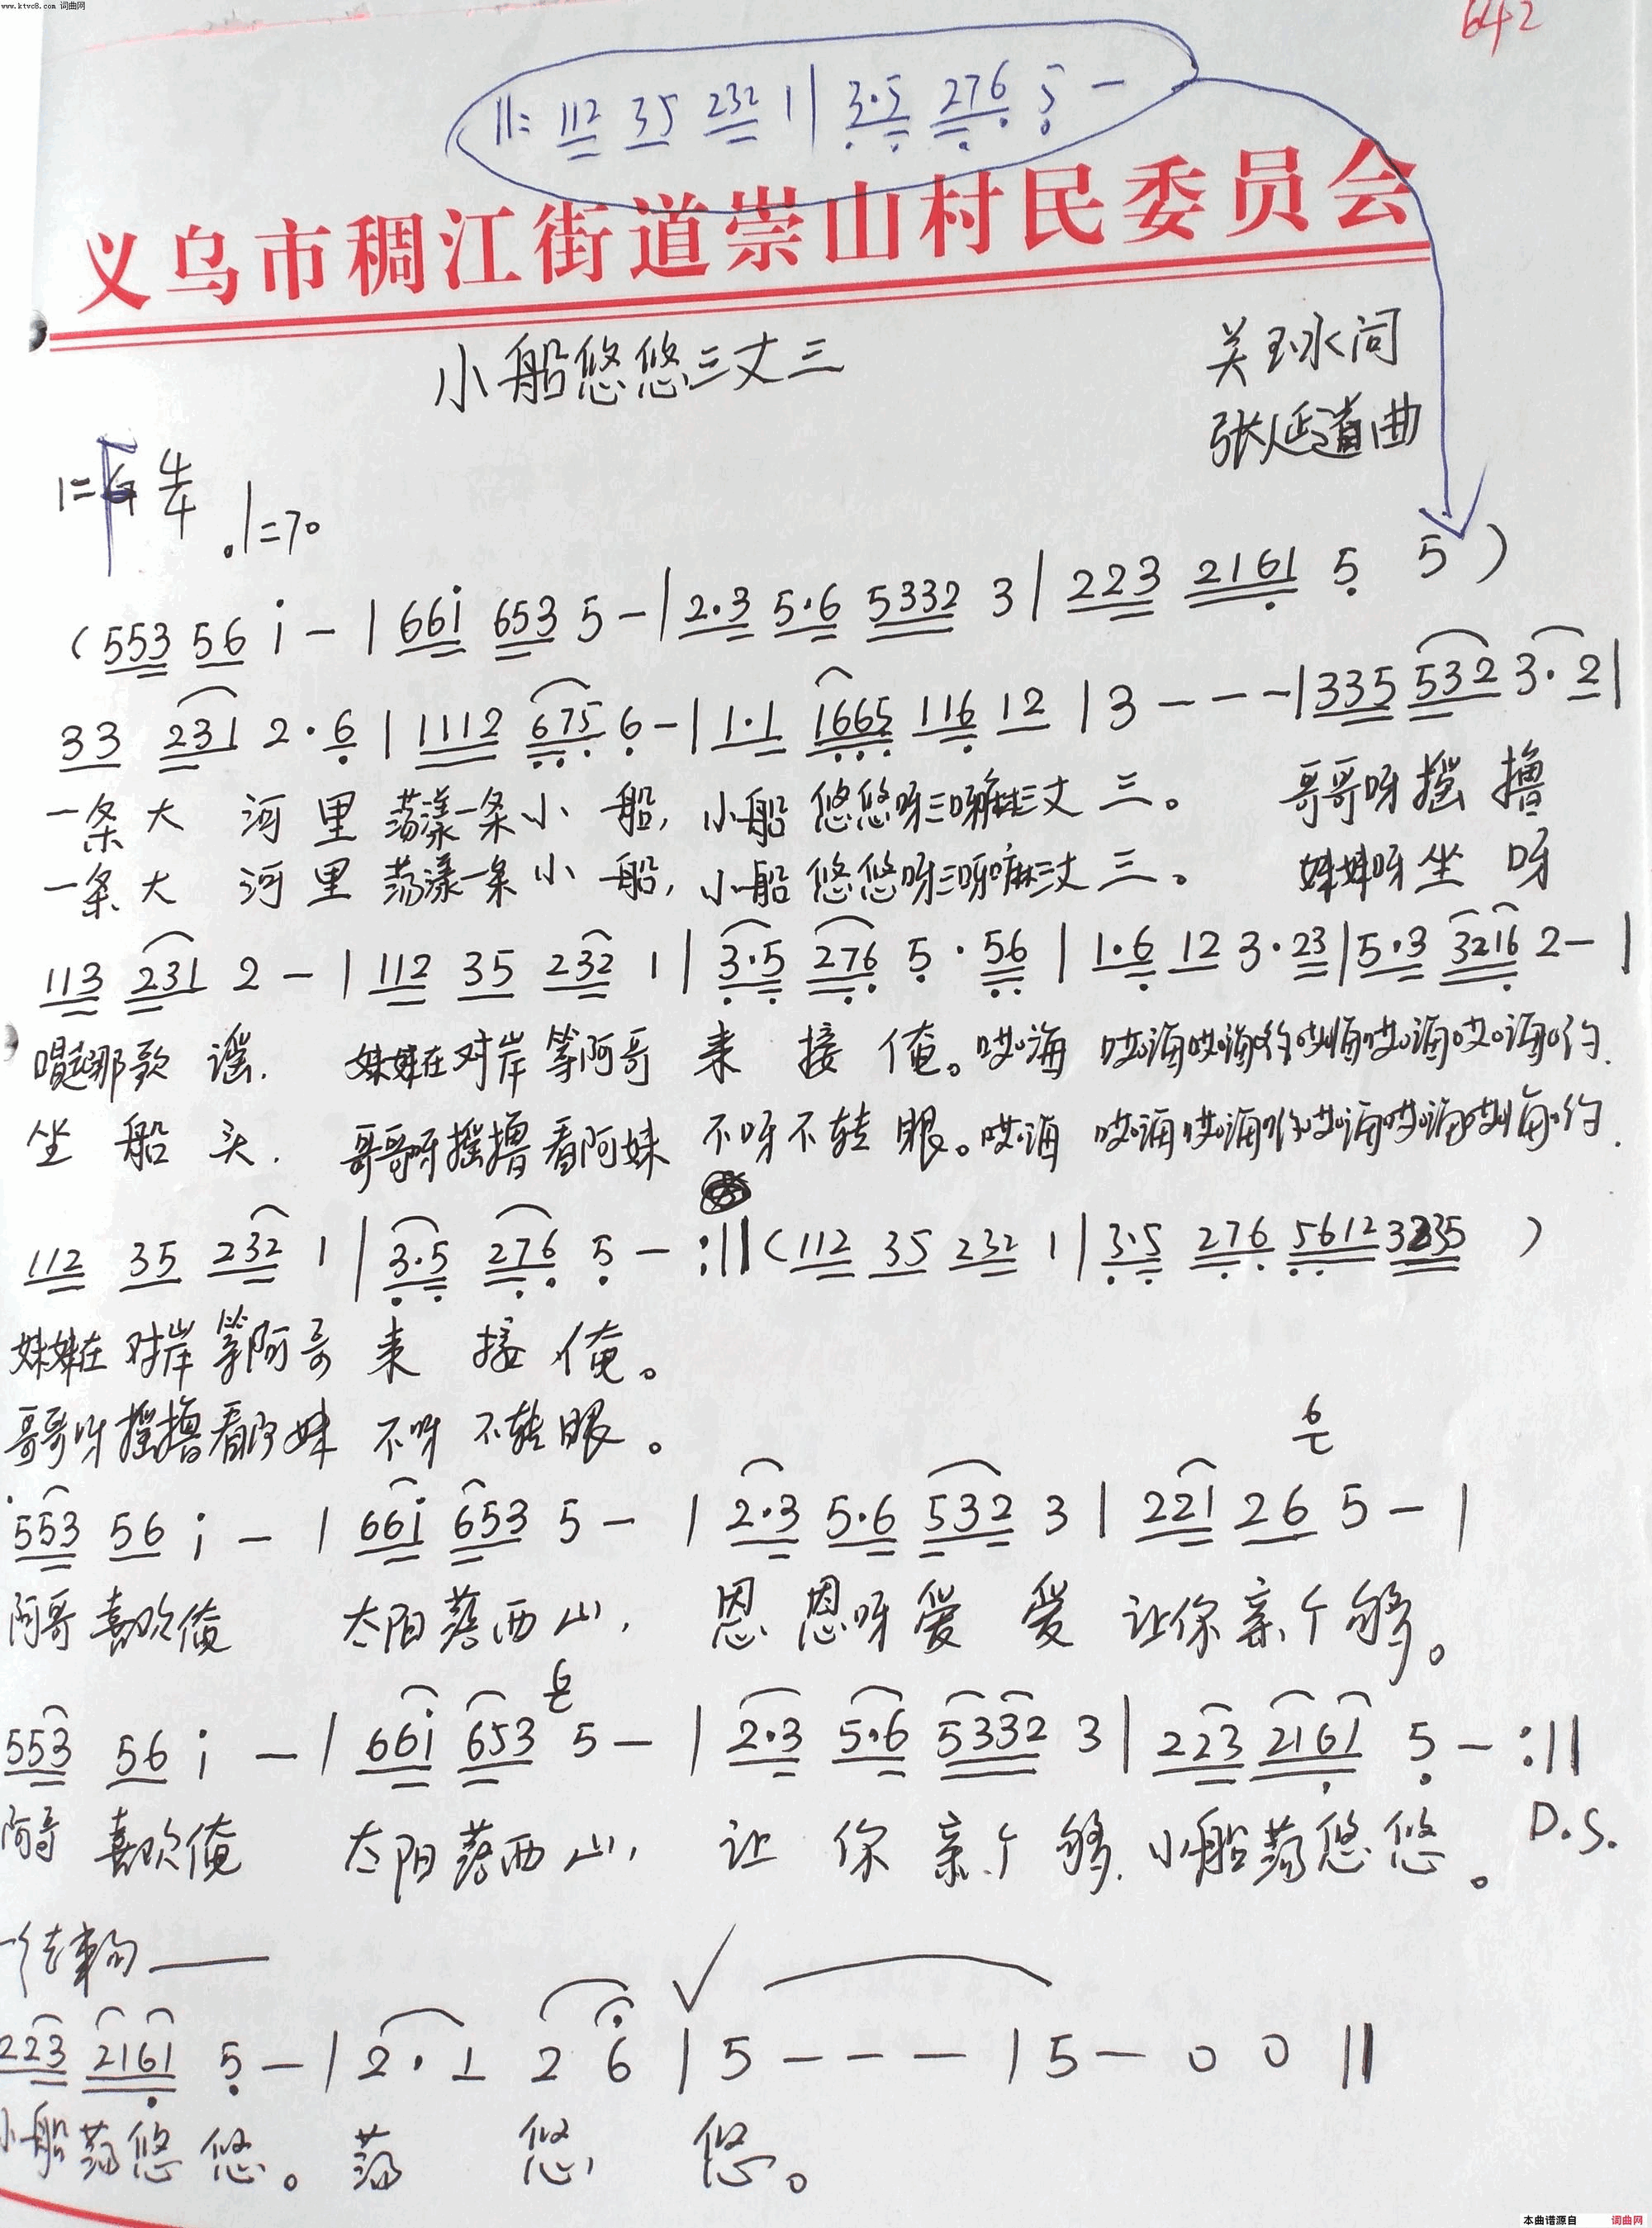 www.ktvc8.com 词曲网
642
||: 112 35 232 1 | 3·5 276 5 —
义乌市稠江街道崇山村民委员会
小船悠悠三丈三
关玉水词
张延道曲
1= 4/4
♩=70
(553 56 i — | 66i 653 5 — | 2·3 5·6 5332 3 | 223 2161 5 5 )
33 231 2·6 | 1112 675 6 — | 1·1 1665 116 12 | 3 — — — | 335 532 3·2 |
一条大 河里 荡漾一条小 船, 小船 悠悠呀三呀嘛三丈 三。 哥哥呀摇 撸
一条大 河里 荡漾一条小 船, 小船 悠悠呀三呀嘛三丈 三。 妹妹呀坐 呀
113 231 2 — | 112 35 232 1 | 3·5 276 5·56 | 1·6 12 3·23 | 5·3 3216 2 — |
唱起那歌 谣. 妹妹在对岸等阿哥 来 接 俺。哎海 哎海哎海哟哎海哎海哎海哟.
坐 船 头. 哥哥呀摇撸看阿妹 不呀不转 眼。哎海 哎海哎海哟哎海哎海哎海哟.
112 35 232 1 | 3·5 276 5 — :||(112 35 232 1 | 3·5 276 5612 3235 )
妹妹在 对岸等阿哥 来 接 俺。
哥哥呀摇撸看阿妹 不呀 不转眼。
6
553 56 i — | 66i 653 5 — | 2·3 5·6 532 3 | 221 26 5 — |
阿哥 喜欢俺 太阳落西山, 恩 恩呀爱 爱 让你亲个够。
6
553 56 i — | 66i 653 5 — | 2·3 5·6 5332 3 | 223 2161 5 — :||
阿哥 喜欢俺 太阳落西山, 让 你 亲个 够. 小船荡悠悠。 D.S.
结束句——
223 2161 5 — | 2·1 2 6 | 5 — — — | 5 — 0 0 ||
小船荡悠悠。荡 悠 悠。
本曲谱源自 词曲网